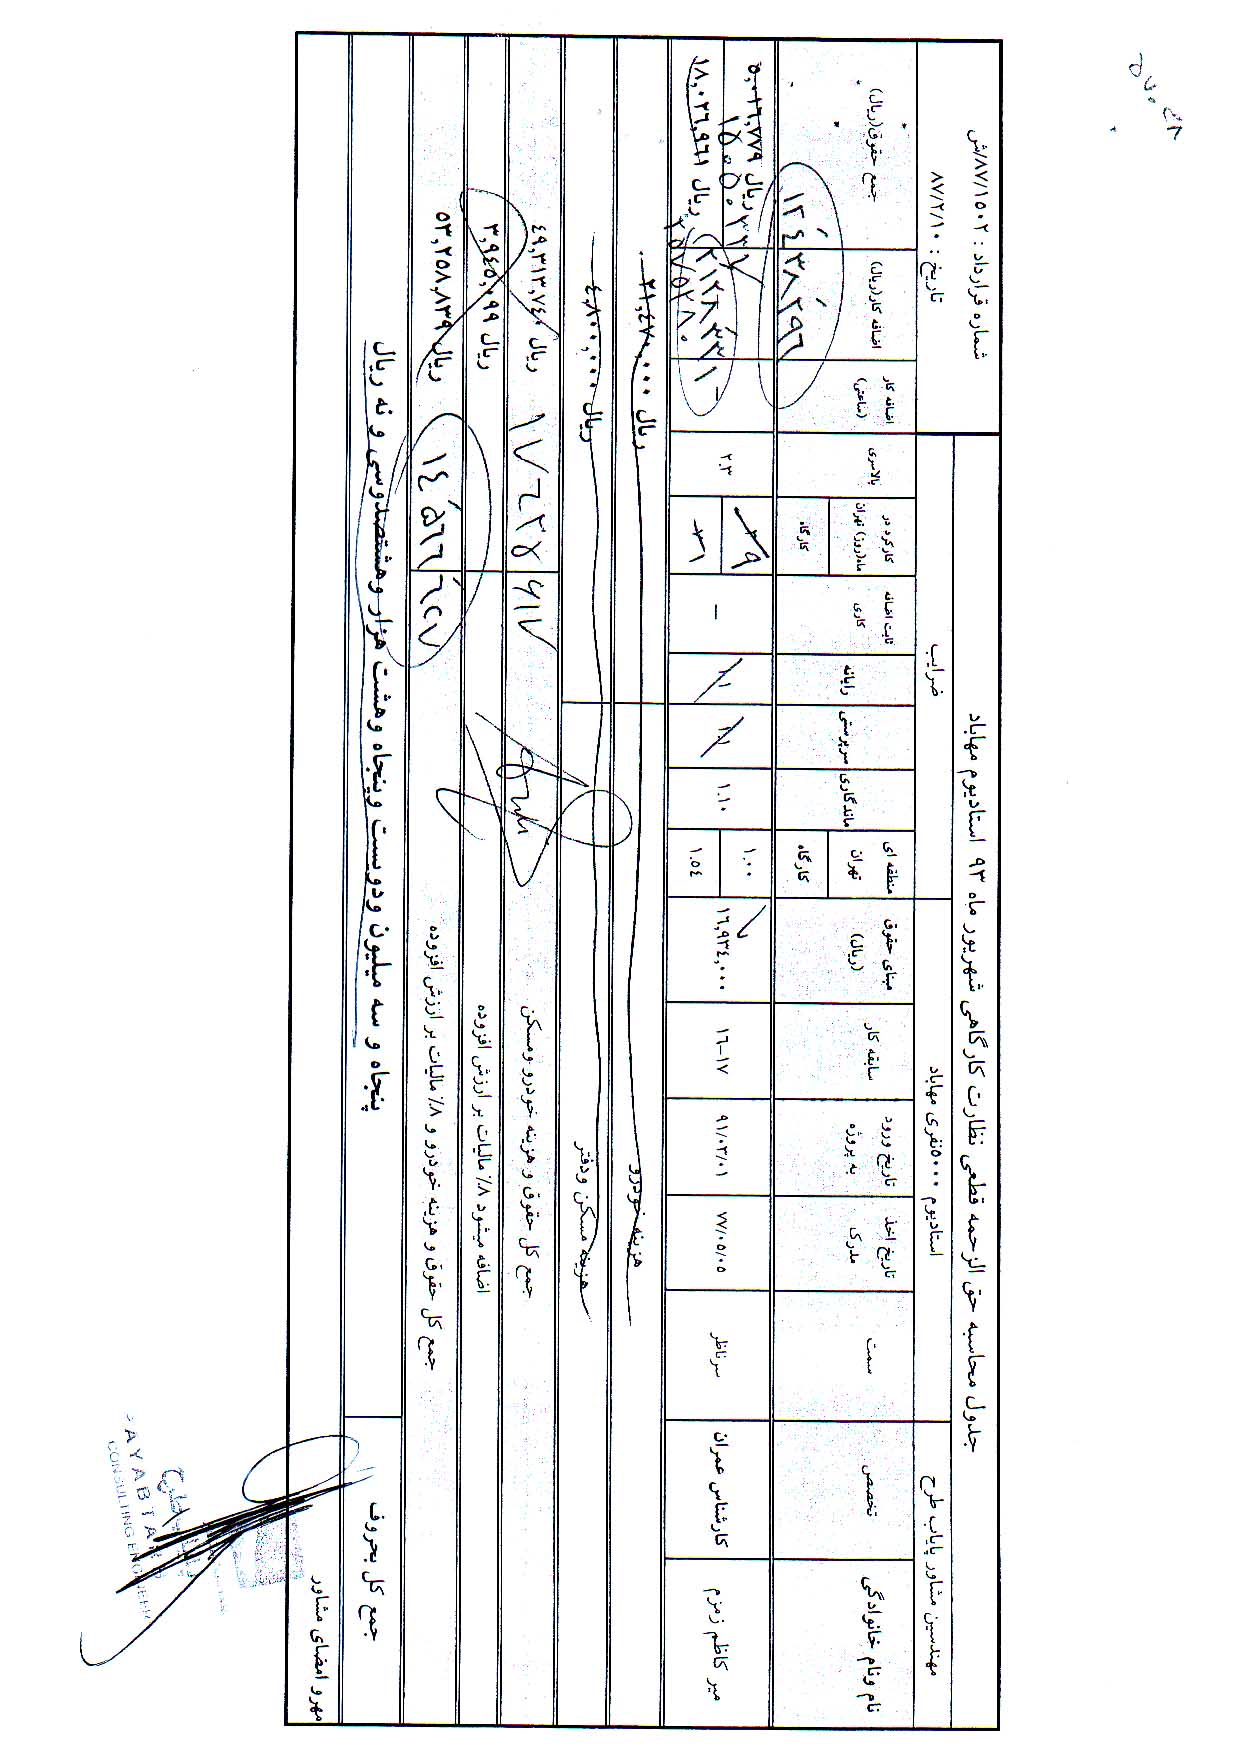 جدول محاسبه حق الزحمه قطعی نظارت کارگاهی شهریور ماه ۹۳ استادیوم مهاباد
شماره قرارداد : ۸۷/۱۵۰۲/ش
تاریخ : ۸۷/۲/۱۰
مهندسین مشاور پایاب طرح
استادیوم ۵۰۰۰نفری مهاباد
ضرایب
نام ونام خانوادگی
تخصص
سمت
تاریخ اخذ مدرک
تاریخ ورود به پروژه
سابقه کار
مبنای حقوق (ریال)
منطقه ای
تهران
کارگاه
ماندگاری
سرپرستی
رایانه
ثابت اضافه کاری
کارکرد در ماه(روز) تهران
کارگاه
بالاسری
اضافه کار (ساعتی)
اضافه کار(ریال)
جمع حقوق(ریال)
میر کاظم زمزم
کارشناس عمران
سرناظر
۷۷/۰۵/۰۵
۹۱/۰۳/۰۱
۱۶-۱۷
۱۶,۹۳٤,۰۰۰
۱.۰۰
۱.۵٤
۱.۱۰
۱.۱
۱.۱
-
۲.۳
۵,۰۱٦,۷۷۹ ریال
۱۸,۰۲٦,۹٦۱ ریال
۱۳٤۳۸۲۹۶
هزینه خودرو
۲۱,٤۷۰,۰۰۰ ریال
هزینه مسکن ودفتر
٤,۸۰۰,۰۰۰ ریال
جمع کل حقوق و هزینه خودرو ومسکن
٤۹,۳۱۳,۷٤۰ ریال
اضافه میشود ۸٪ مالیات بر ارزش افزوده
۳,۹٤۵,۰۹۹ ریال
جمع کل حقوق و هزینه خودرو و ۸٪ مالیات بر ارزش افزوده
۵۳,۲۵۸,۸۳۹ ریال
جمع کل بحروف
پنجاه و سه میلیون ودوست وپنجاه وهشت هزار وهشتصدوسی و نه ریال
مهر و امضای مشاور
AYABTA
CONSULTING ENGINEER